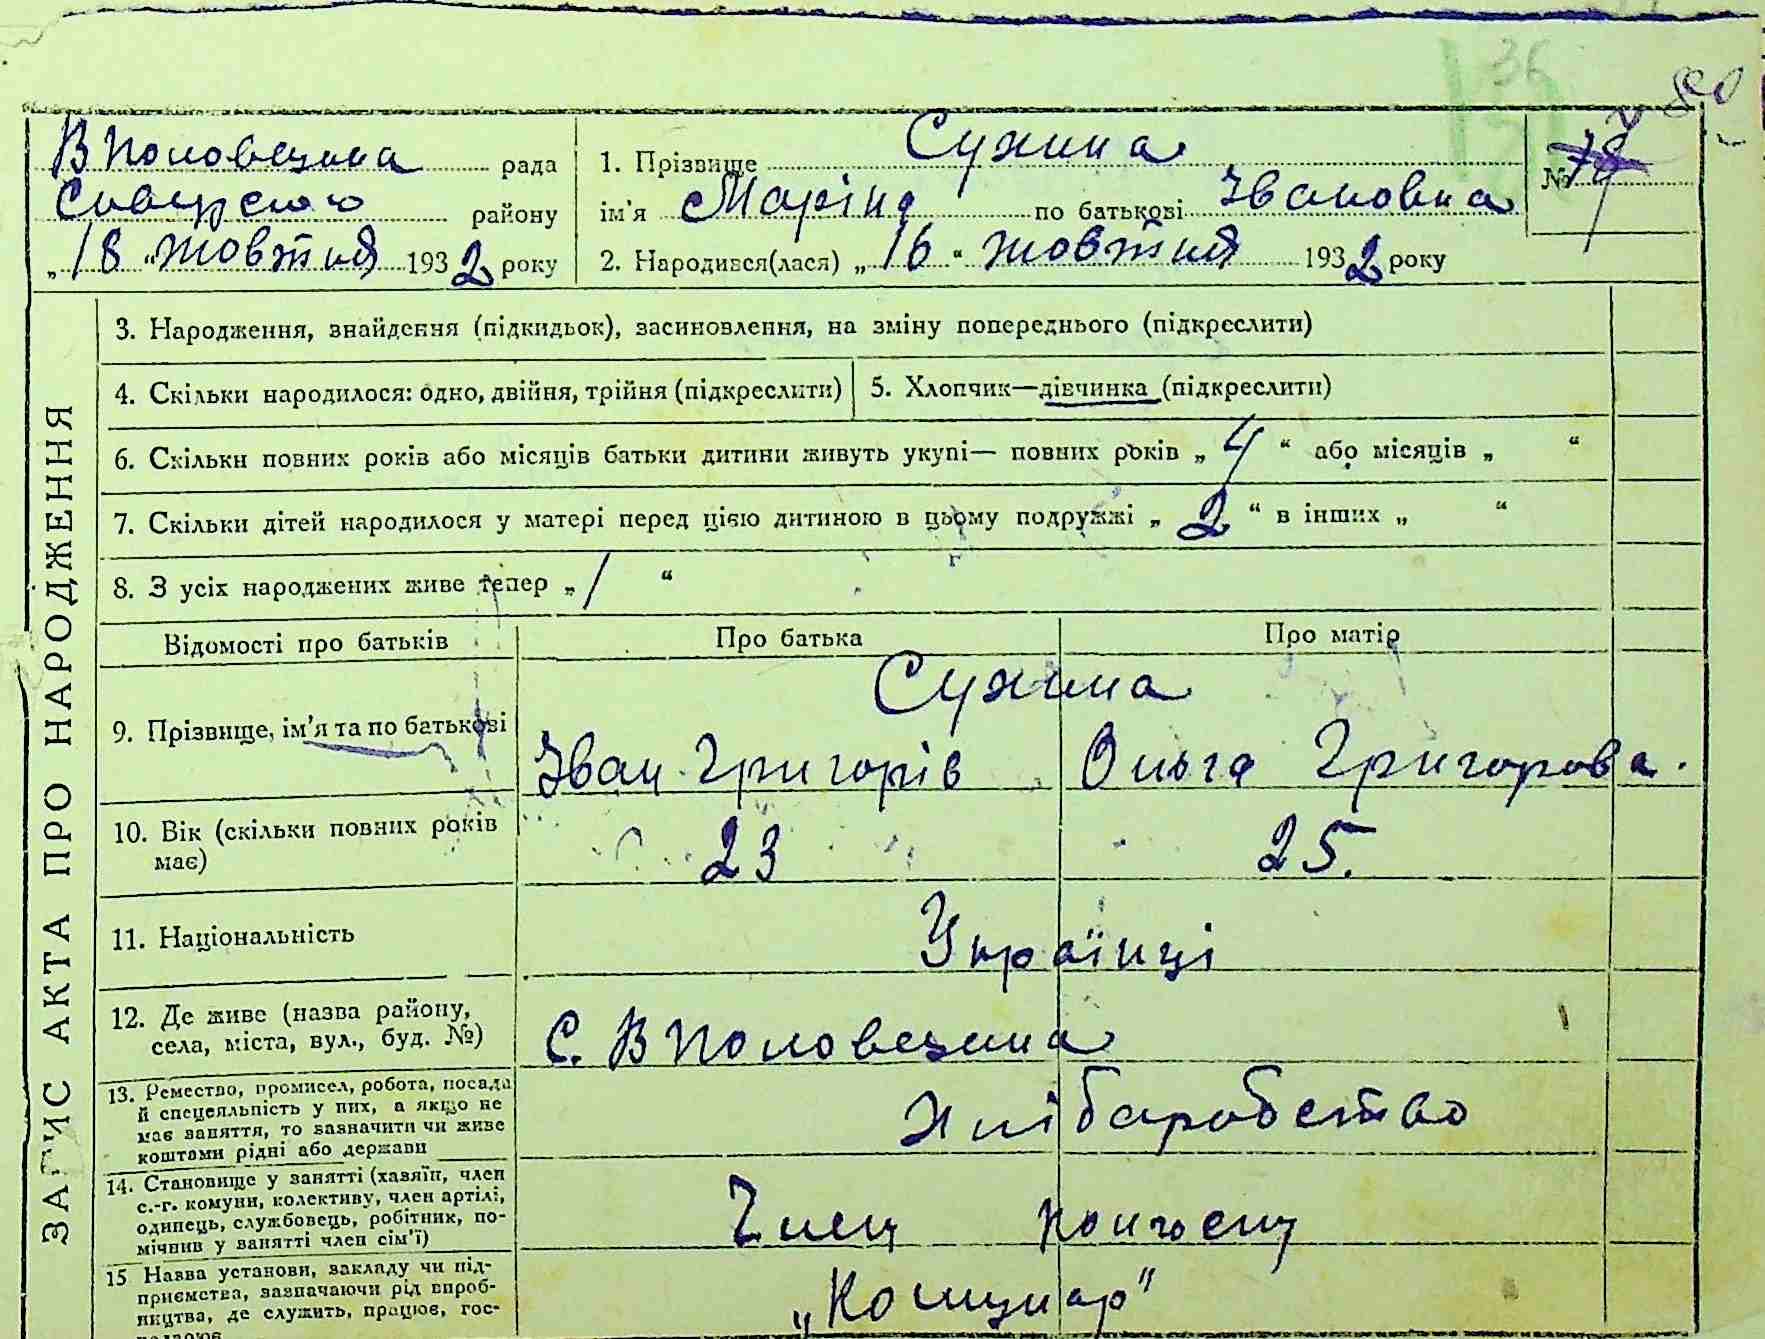 36
80
В Половецька рада
Сквирського району
„18 „ жовтня 1932 року
1. Прізвище Сухина
ім'я Маріна по батькові Івановна
№ 78
2. Народився(лася) „16 “ жовтня 1932 року
ЗАПИС АКТА ПРО НАРОДЖЕННЯ
3. Народження, знайдення (підкидьок), засиновлення, на зміну попереднього (підкреслити)
4. Скільки народилося: одно, двійня, трійня (підкреслити)
5. Хлопчик—дівчинка (підкреслити)
6. Скільки повних років або місяців батьки дитини живуть укупі— повних років „ 4 “ або місяців „ “
7. Скільки дітей народилося у матері перед цією дитиною в цьому подружжі „ 2 “ в інших „ “
8. З усіх народжених живе тепер „ 1 “
Відомості про батьків
Про батька
Про матір
9. Прізвище, ім'я та по батькові
Сухина
Іван Григорів
Ольга Григорова.
10. Вік (скільки повних років
має)
23
25.
11. Національність
Українці
12. Де живе (назва району,
села, міста, вул., буд. №)
С. В Половецька
13. Ремество, промисел, робота, посада
й спецеяльність у них, а якщо не
має заняття, то зазначити чи живе
коштами рідні або держави
Хліборобство
14. Становище у занятті (хазяїн, член
с.-г. комуни, колективу, член артілі,
одинець, службовець, робітник, по-
мічнив у занятті член сім'ї)
Член колгоспу
15 Назва установи, закладу чи під-
приємства, зазначаючи рід вироб-
ництва, де служить, працює, гос-
подарює